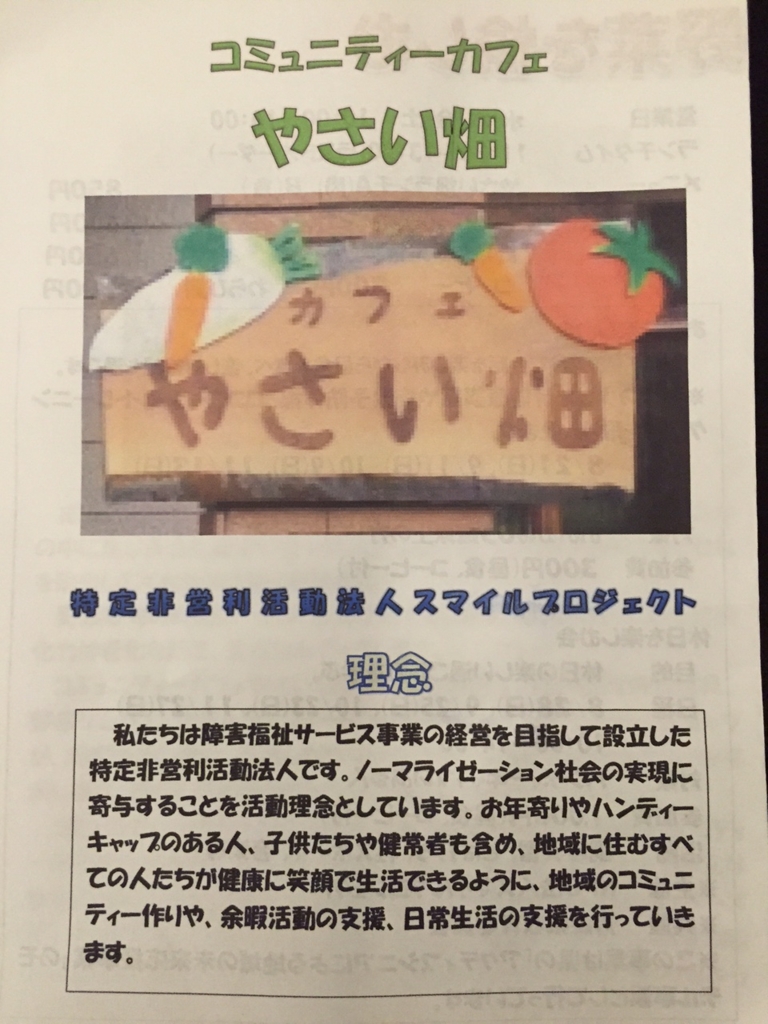 コミュニティーカフェ
やさい畑
カフェ
やさい畑
特定非営利活動法人スマイルプロジェクト
理念
私たちは障害福祉サービス事業の経営を目指して設立した
特定非営利活動法人です。ノーマライゼーション社会の実現に
寄与することを活動理念としています。お年寄りやハンディー
キャップのある人、子供たちや健常者も含め、地域に住むすべ
ての人たちが健康に笑顔で生活できるように、地域のコミュニ
ティー作りや、余暇活動の支援、日常生活の支援を行っていき
ます。